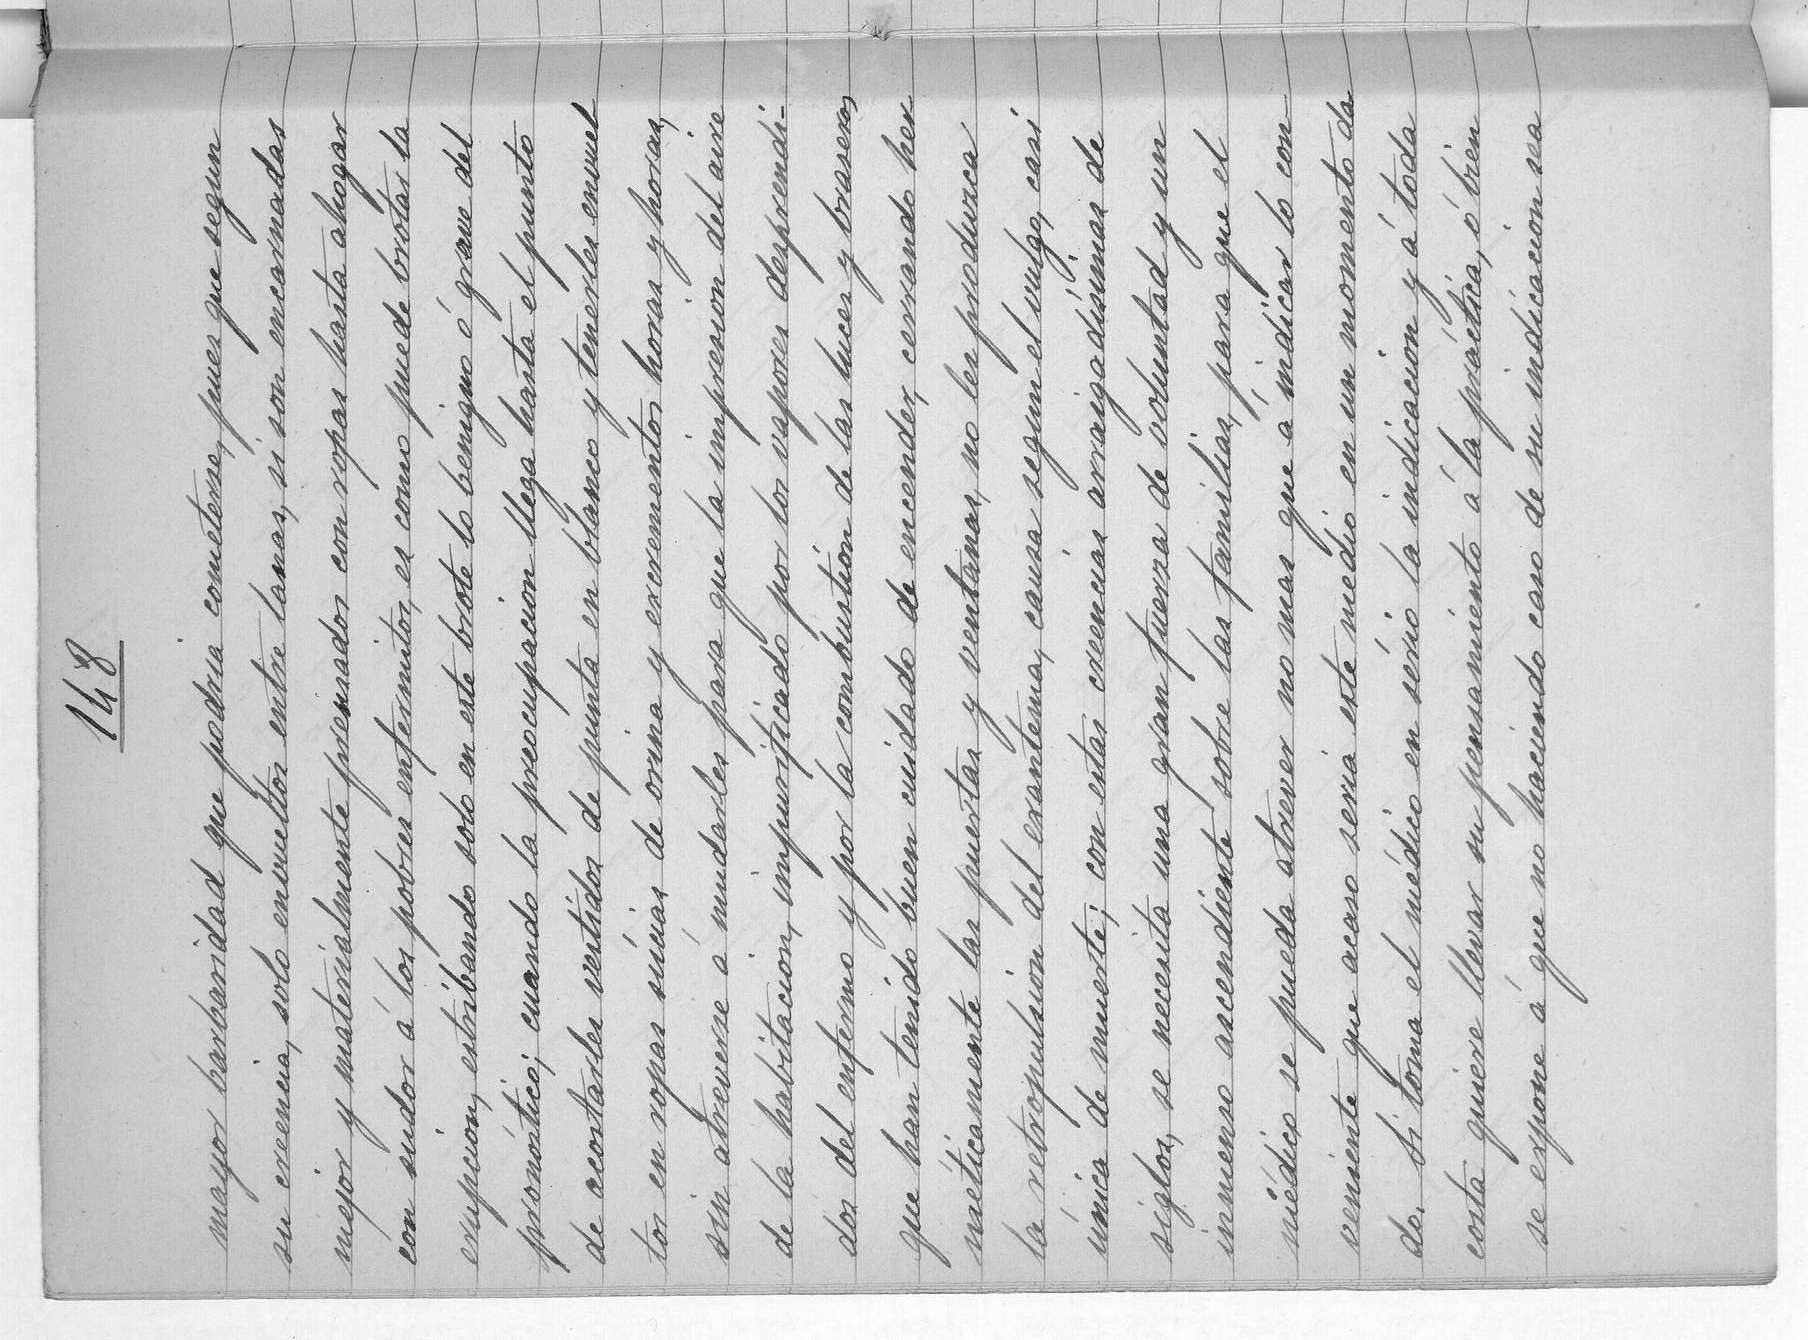 148
mayor barbaridad que podria cometerse, pues que segun
su creencia, solo envueltos entre lanas, si son encarnadas
mejor y materialmente prensados con ropas hasta ahogar
con sudor á los pobres enfermitos, es como puede brotar la
erupcion, estribando solo en este brote lo benigno ó grave del
pronóstico; cuando la preocupacion llega hasta el punto
de acostarles vestidos de punta en blanco y tenerles envuel
tos en ropas súcias de orina y excrementos horas y horas,
sin atreverse á mudarles para que la impresion del aire
de la habitacion, impurificado por los vapores desprendi-
dos del enfermo y por la combustion de las luces y braseros
que han tenido buen cuidado de encender, cerrando her
méticamente las puertas y ventanas, no les produzca
la retropulsion del exantema, causa segun el vulgo, casi
única de muerte; con estas creencias arraigadísimas de
siglos, se necesita una gran fuerza de voluntad y un
inmenso ascendiente sobre las familias, para que el
médico se pueda atrever no mas que á indicar lo con
veniente que acaso seria este medio en un momento da
do. Si toma el médico en sério la indicacion y á toda
costa quiere llevar su pensamiento á la práctica, ó bien
se expone á que no haciendo caso de su indicacion sea